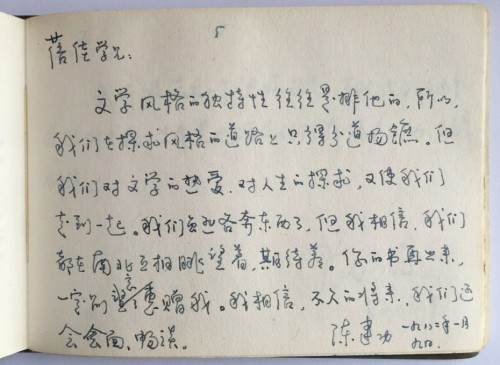 5
蓓佳学兄:
文学风格的独特性往往是排他的,所以,
我们在探求风格的道路上只得分道扬镳。但
我们对文学的热爱,对人生的探求,又使我们
走到一起。我们各奔东西了,但我相信,我们
都在南北互相眺望着,期待着。你的书再出来,
一定别忘惠赠我。我相信,不久的将来,我们还
会会面,畅谈。
陈建功 一九八二年一月
九日.